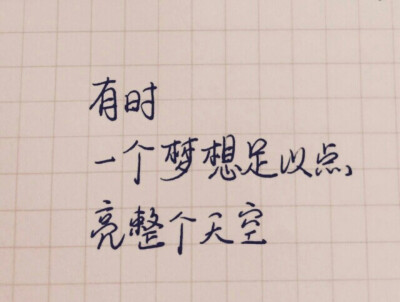 有时
一个梦想足以点
亮整个天空